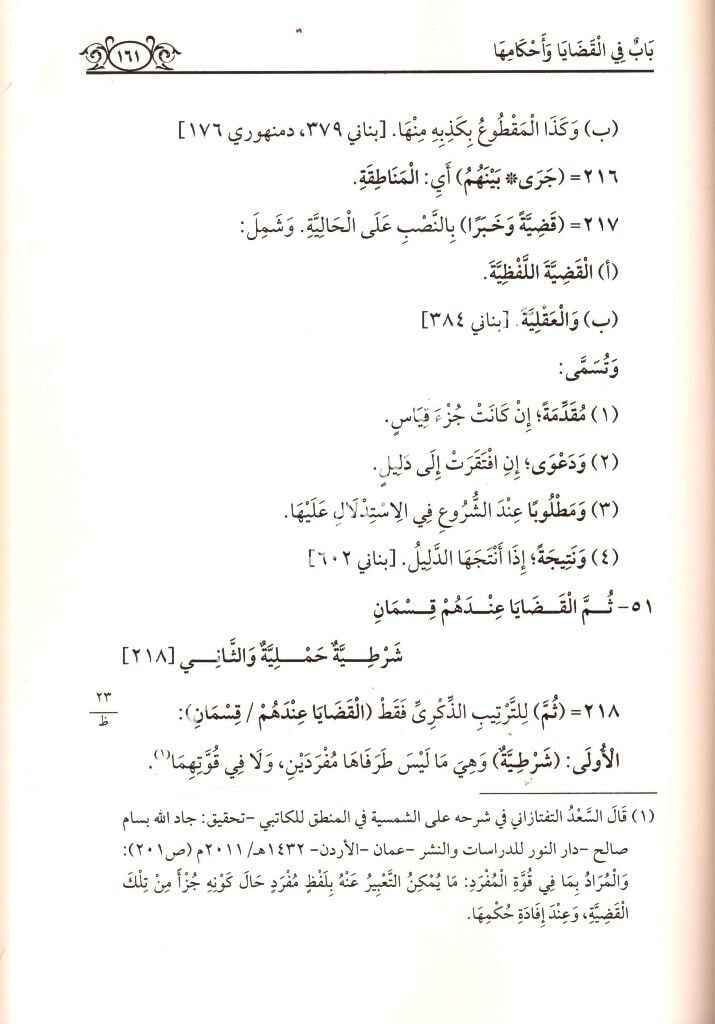 بَابٌ فِي الْقَضَايَا وَأَحْكَامِهَا
١٦١
(ب) وَكَذَا الْمَقْطُوعُ بِكَذِبِهِ مِنْهَا. [بناني ٣٧٩، دمنهوري ١٧٦]
٢١٦= (جَرَى* بَيْنَهُمُ) أَيِ: الْمَنَاطِقَةِ.
٢١٧= (قَضِيَّةً وَخَبَرًا) بِالنَّصْبِ عَلَى الْحَالِيَّةِ. وَشَمِلَ:
(أ) الْقَضِيَّةَ اللَّفْظِيَّةَ.
(ب) وَالْعَقْلِيَّةَ. [بناني ٣٨٤]
وَتُسَمَّى:
(١) مُقَدِّمَةً؛ إِنْ كَانَتْ جُزْءَ قِيَاسٍ.
(٢) وَدَعْوَى؛ إِنِ افْتَقَرَتْ إِلَى دَلِيلٍ.
(٣) وَمَطْلُوبًا عِنْدَ الشُّرُوعِ فِي الِاسْتِدْلَالِ عَلَيْهَا.
(٤) وَنَتِيجَةً؛ إِذَا أَنْتَجَهَا الدَّلِيلُ. [بناني ٦٠٢]
٥١- ثُــمَّ الْقَــضَايَا عِنْــدَهُمْ قِــسْمَانِ
شَرْطِــيَّةٌ حَمْــلِيَّةٌ وَالثَّانِــي [٢١٨]
٢١٨= (ثُمَّ) لِلتَّرْتِيبِ الذِّكْرِيِّ فَقَطْ (الْقَضَايَا عِنْدَهُمْ / قِسْمَانِ):
٢٣
ظ
الْأُولَى: (شَرْطِيَّةٌ) وَهِيَ مَا لَيْسَ طَرَفَاهَا مُفْرَدَيْنِ، وَلَا فِي قُوَّتِهِمَا(١).
(١) قَالَ السَّعْدُ التفتازاني في شرحه على الشمسية في المنطق للكاتبي –تحقيق: جاد الله بسام
صالح –دار النور للدراسات والنشر –عمان –الأردن– ١٤٣٢هـ/ ٢٠١١م (ص٢٠١):
وَالْمُرَادُ بِمَا فِي قُوَّةِ الْمُفْرَدِ: مَا يُمْكِنُ التَّعْبِيرُ عَنْهُ بِلَفْظٍ مُفْرَدٍ حَالَ كَوْنِهِ جُزْأً مِنْ تِلْكَ
الْقَضِيَّةِ، وَعِنْدَ إِفَادَةِ حُكْمِهَا.